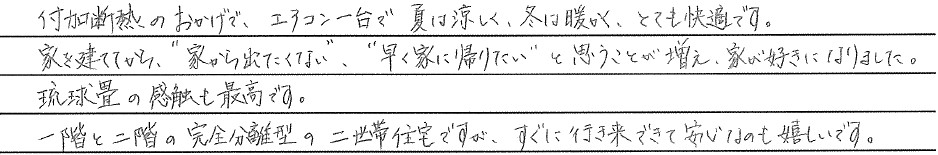 付加断熱のおかげで、エアコン一台で夏は涼しく、冬は暖かく、とても快適です。
家を建ててから、"家から出たくない"、"早く家に帰りたい"と思うことが増え、家が好きになりました。
琉球畳の感触も最高です。
一階と二階の完全分離型の二世帯住宅ですが、すぐに行き来できて安心なのも嬉しいです。